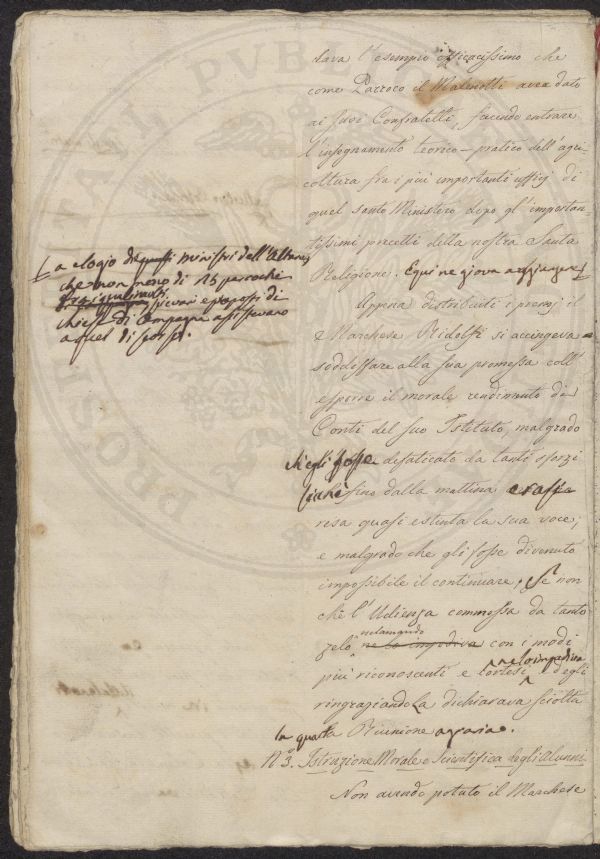 dava l'esempio efficacissimo che
come Parroco il Malenotti avea dato
ai suoi Confratelli, facendo entrare
l'insegnamento teorico-pratico dell'agri
coltura fra i più importanti ufficj di
quel santo Ministero dopo gl'importan-
tissimi precetti della nostra Santa
Religione. E qui ne giova aggiungere
a elogio di questi ministri dell'Altare,
che non meno di 26 parrochi
pievani e preposti di
chiese di Campagna assistevano
a quel discorso.
Appena distribuiti i premj il
Marchese Ridolfi si accingeva a
soddisfare alla sua promessa coll'
esporre il morale rendimento di
Conti del suo Istituto, malgrado
ch'egli fosse defaticato da tanti sforzi
fino dalla mattina e rafsa
resa quasi estinta la sua voce;
e malgrado che gli fosse divenuto
impossibile il continuare, Se non
chè l'Udienza commossa da tanto
zelo reclamando ne lo impediva con i modi
più riconoscenti e cortesi ne lo impediva e degli
ringraziandola dichiarava sciolta
la quarta Riunione agraria.
N.º 3. Istruzione Morale e Scientifica degli Alunni
Non avendo potuto il Marchese
PUBLICO